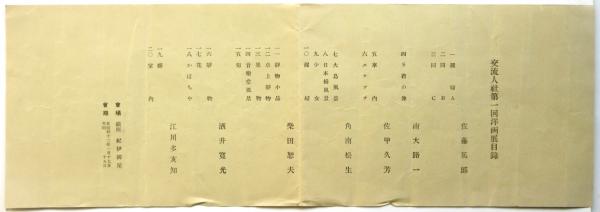 交流人社第一回洋画展目録
佐藤篤郎
一裸婦A
二同 B
三同 C
南大路一
四S君の像
佐甲久芳
五車内
六エチュード
角南松生
七大島風景
八日本橋風景
九少女
一〇裸婦
柴田恕夫
一一静物小品
一二卓上静物
一三果物
一四音楽堂風景
一五菊
酒井寛光
一六静物
一七花
一八かぼちゃ
江川多亥知
一九裸
二〇室内
會場 銀座 紀伊國屋
會期